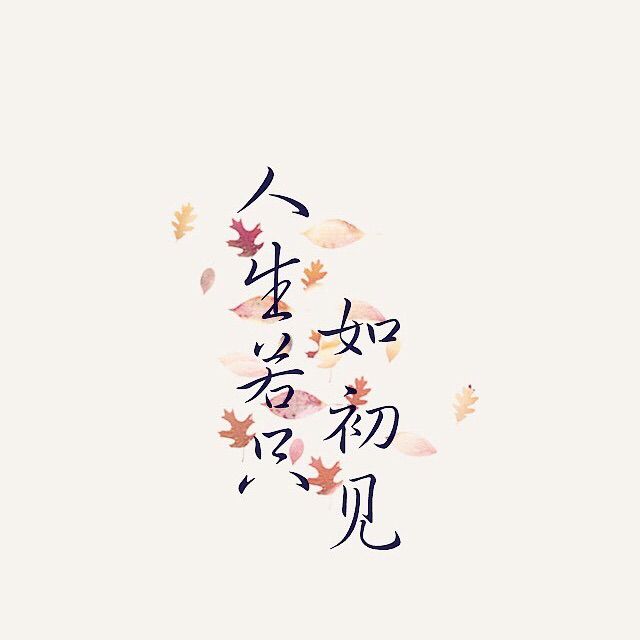 人生若只
如初见